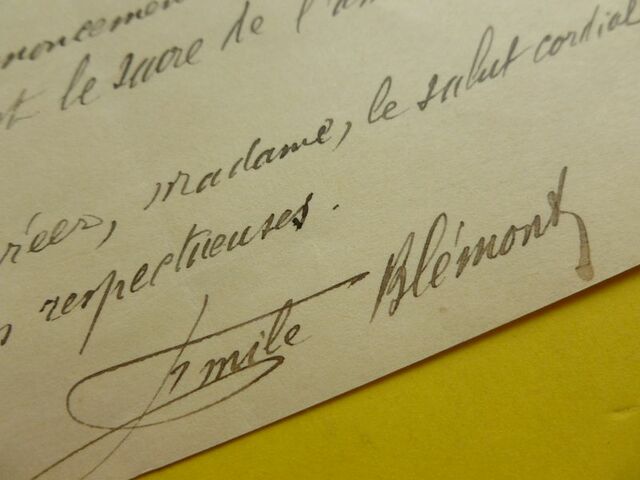 noncement
le sacre de l'
réer, madame, le salut cordial
respectueuses.
Emile Blémont